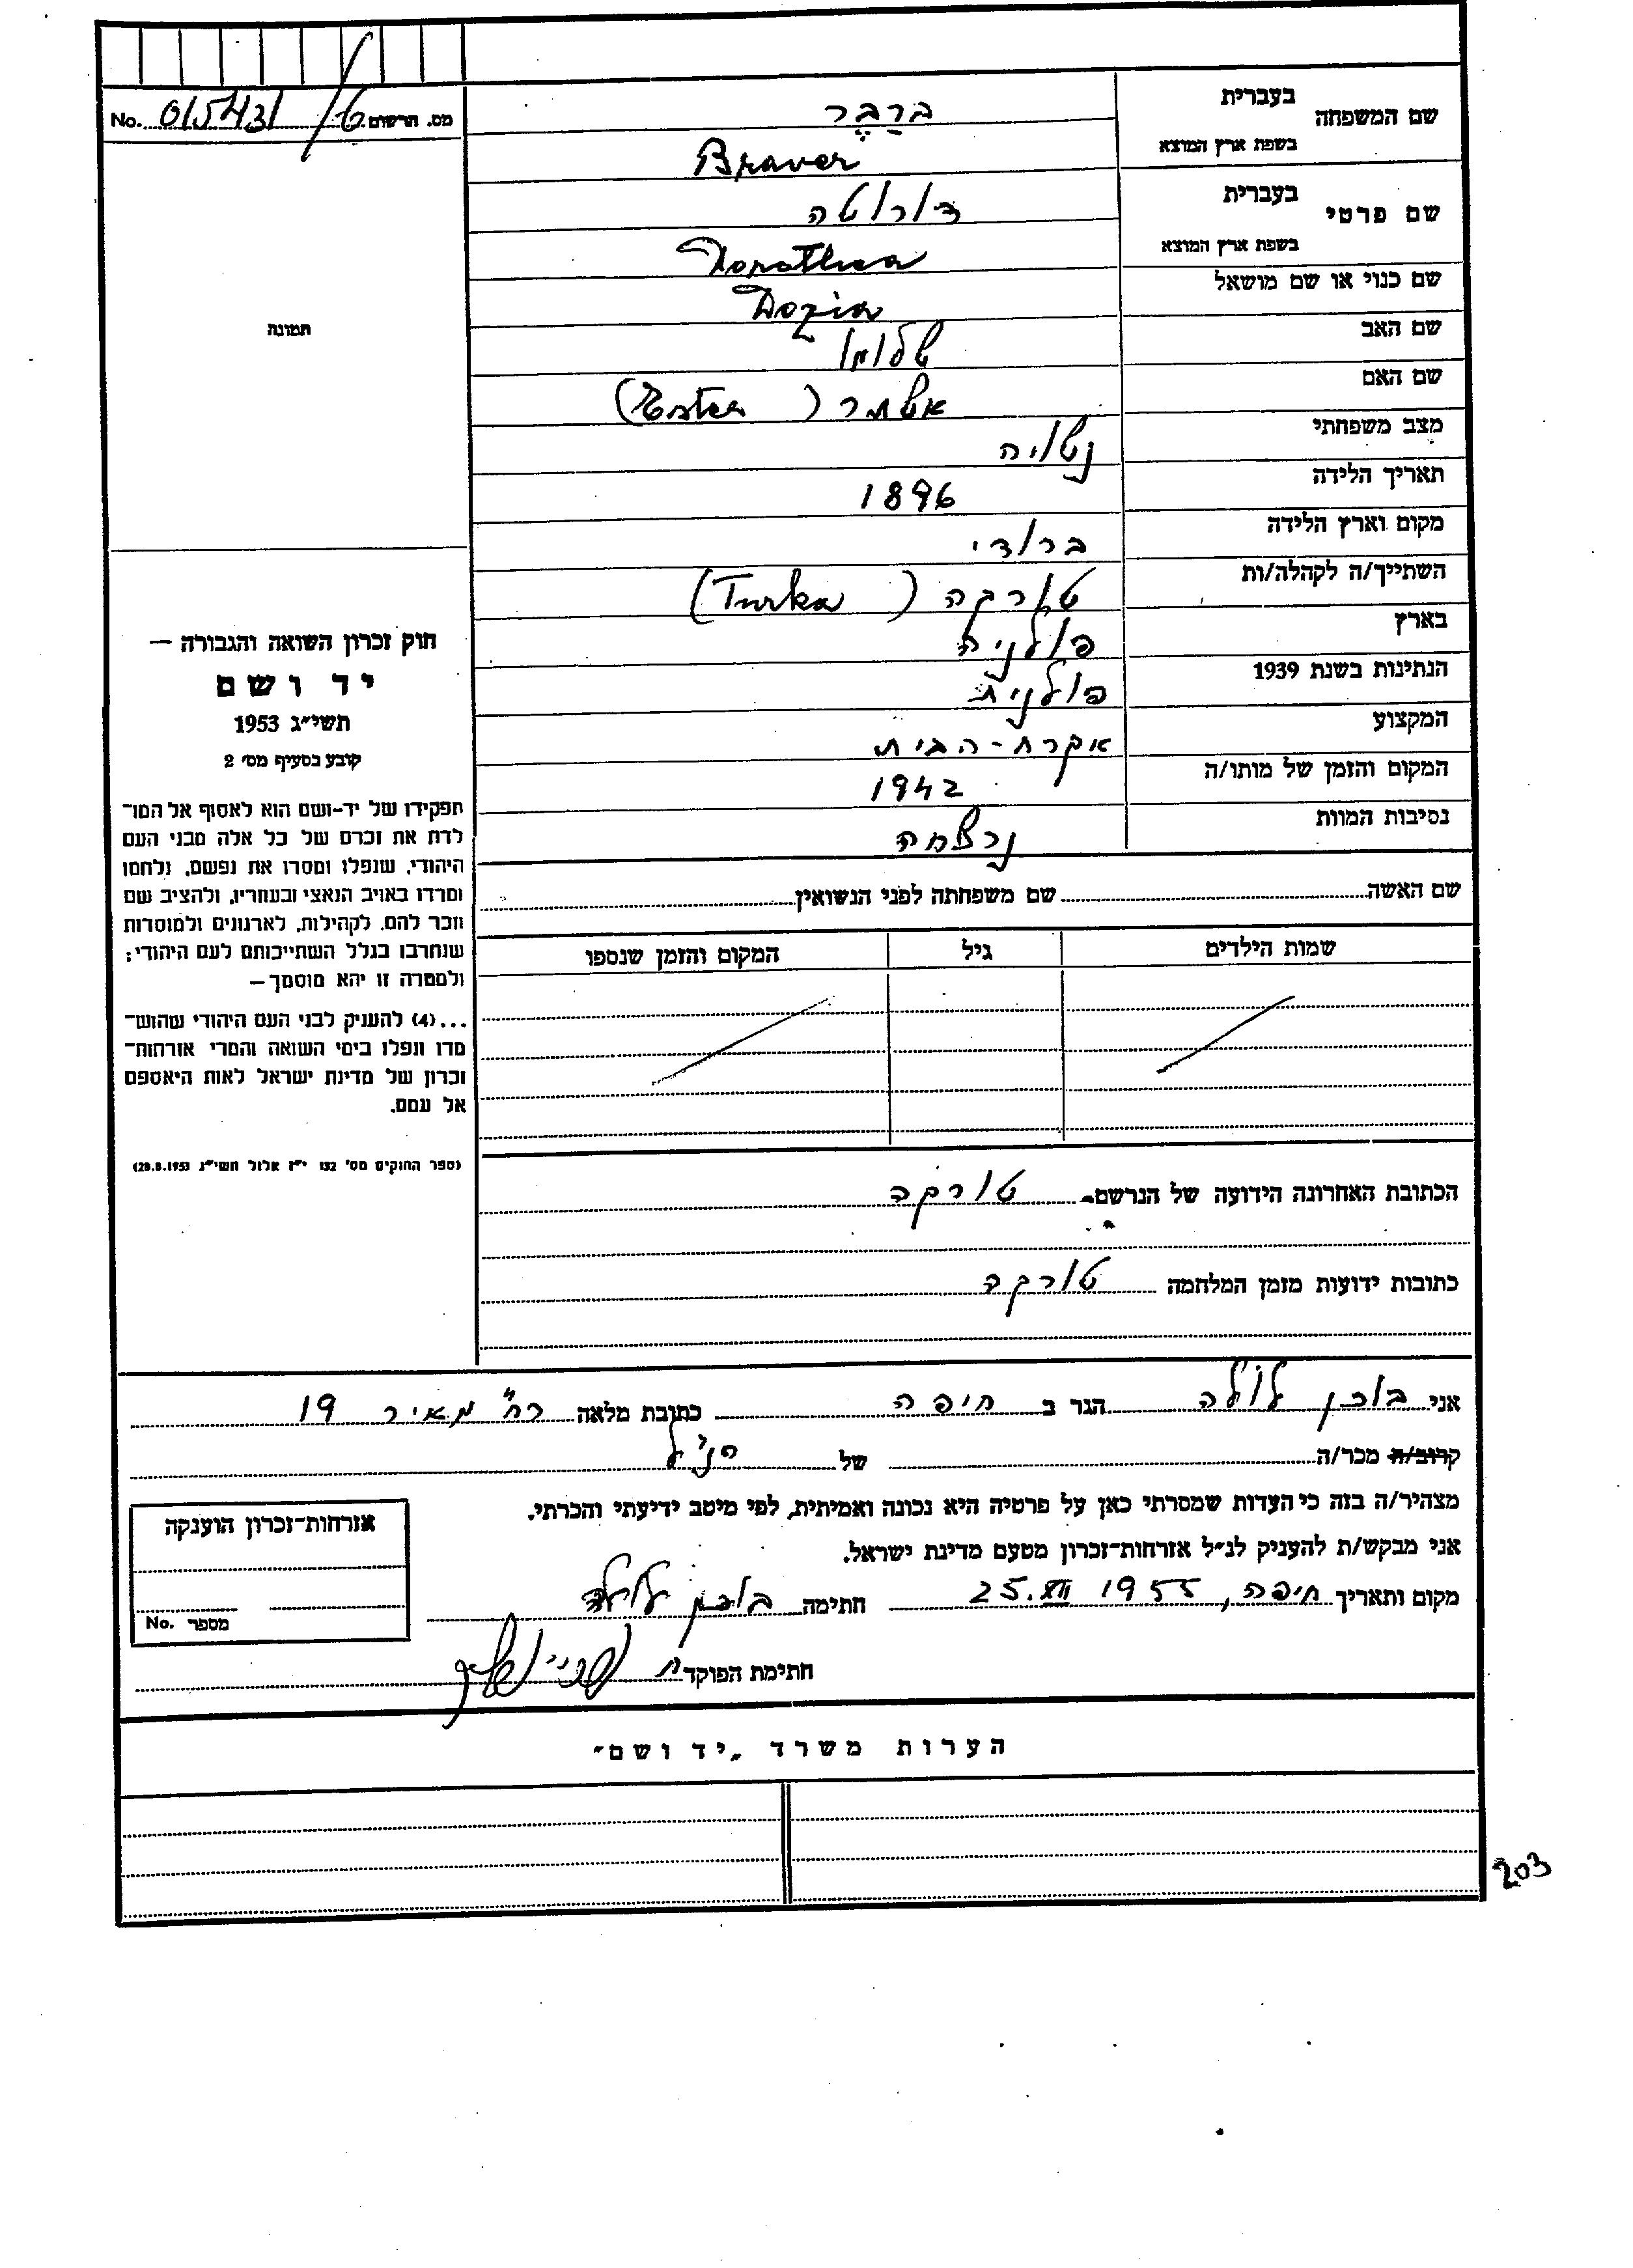 No. 015431/6 מס. הרשום
שם המשפחה
בעברית
ברַבֶר
בשפת ארץ המוצא
Braver
שם פרטי
בעברית
דורוטה
בשפת ארץ המוצא
Dorothea
שם כנוי או שם מושאל
Dozia
שם האב
שלומו
שם האם
אסתר (Ester)
מצב משפחתי
נשואה
תאריך הלידה
1896
מקום וארץ הלידה
ברודי
השתייך/ה לקהלה/ות
טורקה (Turka)
בארץ
פולניה
הנתינות בשנת 1939
פולנית
המקצוע
עקרת-הבית
המקום והזמן של מותו/ה
1942
נסיבות המוות
נרצחה
שם האשה
שם משפחתה לפני הנשואין
שמות הילדים
גיל
המקום והזמן שנספו
הכתובת האחרונה הידועה של הנרשם טורקה
כתובות ידועות מזמן המלחמה טורקה
תמונה
חוק זכרון השואה והגבורה —
יד ושם
תשי״ג 1953
קובע בסעיף מס׳ 2
תפקידו של יד-ושם הוא לאסוף אל המו־
לדת את זכרם של כל אלה מבני העם
היהודי, שנפלו ומסרו את נפשם, נלחמו
ומרדו באויב הנאצי ובעוזריו, ולהציב שם
וזכר להם, לקהילות, לארגונים ולמוסדות
שנחרבו בגלל השתייכותם לעם היהודי;
ולמטרה זו יהא מוסמך —
...(4) להעניק לבני העם היהודי שהוש־
מדו ונפלו בימי השואה והמרי אזרחות־
זכרון של מדינת ישראל לאות היאספם
אל עמם.
(ספר החוקים מס׳ 132 י״ז אלול תשי״ג 28.8.1953)
אני בוכן לולה הגר ב חיפה כתובת מלאה רח׳ מאיר 19
קרוב/ה מכר/ה של הנ״ל
מצהיר/ה בזה כי העדות שמסרתי כאן על פרטיה היא נכונה ואמיתית, לפי מיטב ידיעתי והכרתי.
אני מבקש/ת להעניק לנ״ל אזרחות־זכרון מטעם מדינת ישראל.
מקום ותאריך חיפה, 25.XII 1955 חתימה בוכן לולה
חתימת הפוקד
אזרחות־זכרון הוענקה
No. מספר
הערות משרד „יד ושם״
203